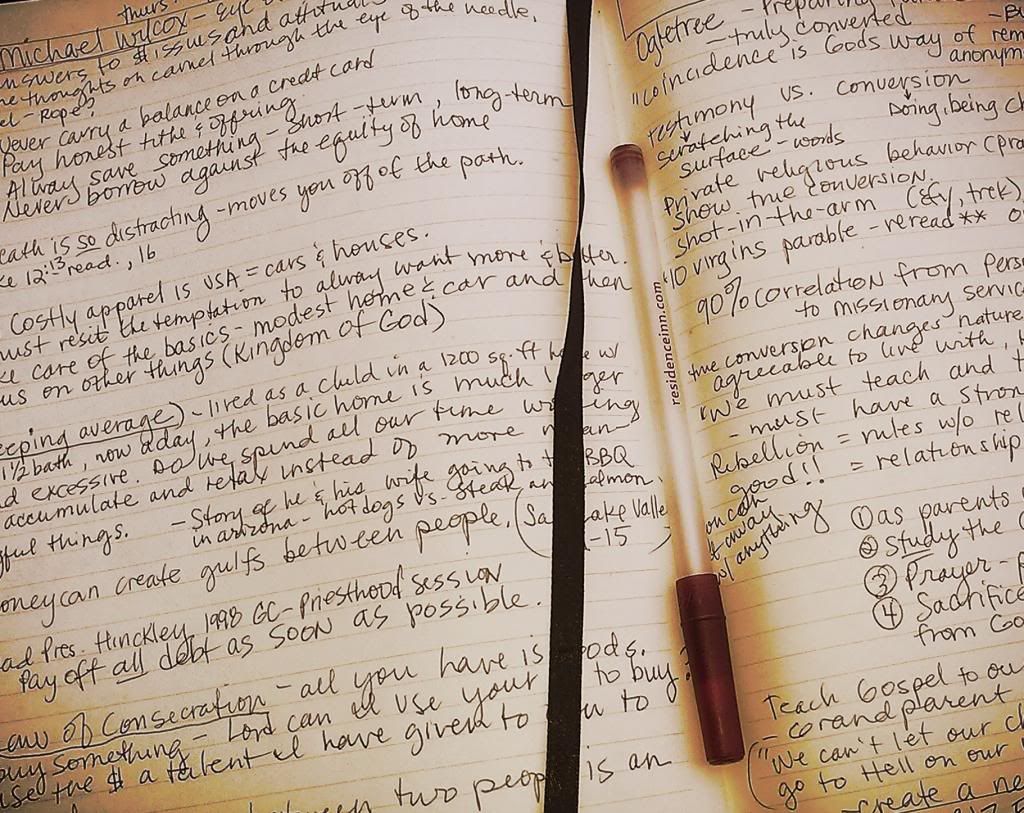 thurs.
Michael Wilcox - Eye
answers to $ issues and attitud
thoughts on camel through the eye of the needle.
- Rope?
Never carry a balance on a credit card
Pay honest tithe & offering
Always save something - Short-term, long-term
Never borrow against the equity of home
is so distracting - moves you off of the path.
12:13 read., 16
Costly apparel is USA = cars & houses.
must resit the temptation to alway want more & better.
care of the basics - modest home & car and then
us on other things (Kingdom of God)
eeping average) - lived as a child in a 1200 sq. ft w/
1½ bath, now a day, the basic home is much
excessive. Do we spend all our time
accumulate and retain instead of more
ful things. - Story of he & his wife going to BBQ
in arizona - hotdogs vs. steak an
oney can create gulfs between people. (Sa ake Valle
-15 )
ad Pres. Hinckley 1998 GC - Priesthood session
Pay off all debt as soon as possible.
Law of Consecration - all you have is ods.
buy something - Lord can use your to buy?
use the $ & talent I have given to u to
two peop is an
Ogletree - Preparing
- truly converted
"Coincidence is Gods way of rem
anonym
testimony vs. conversion
scratching the Doing, being
surface - words
Private religious behavior (pra
show true conversion.
shot-in-the-arm (efy, trek)
10 virgins parable - reread **
90% correlation from pers
to missionary servic
true conversion changes nature
agreeable to live with,
"We must teach and t
- must have a stron
Rebellion = rules w/o rel
good!! = relationship
away
w/ anything
① as parents
② Study the
③ Prayer -
④ Sacrifice
from Go
Teach Gospel to ou
- Grandparent
("We can't let our c
go to Hell on our
- create a ne
residenceinn.com